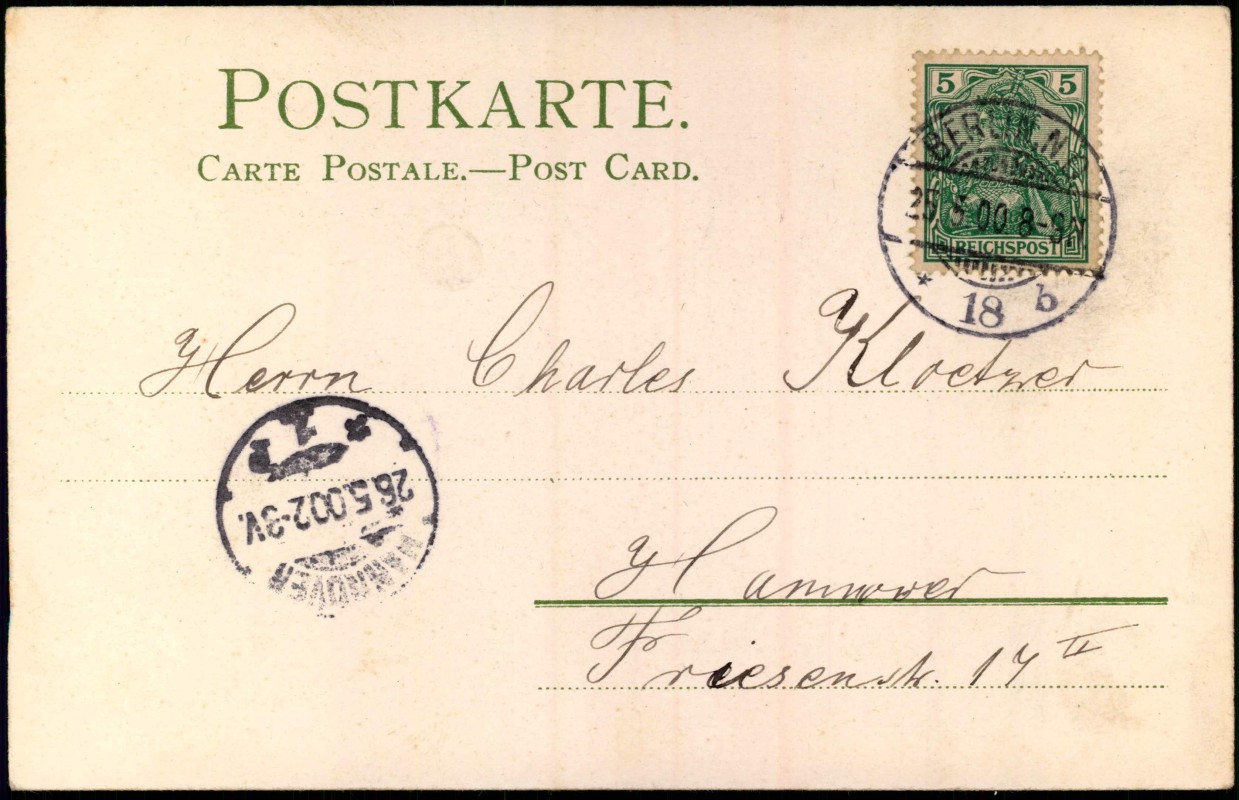 POSTKARTE.
CARTE POSTALE.—POST CARD.
5 5
REICHSPOST
BERLIN N
25.5.00 8-9 V
* 18 b
Herrn Charles Kloetzer
HANNOVER
26.5.00 2-3V.
* 1
Hannover
Friesenstr. 17 II